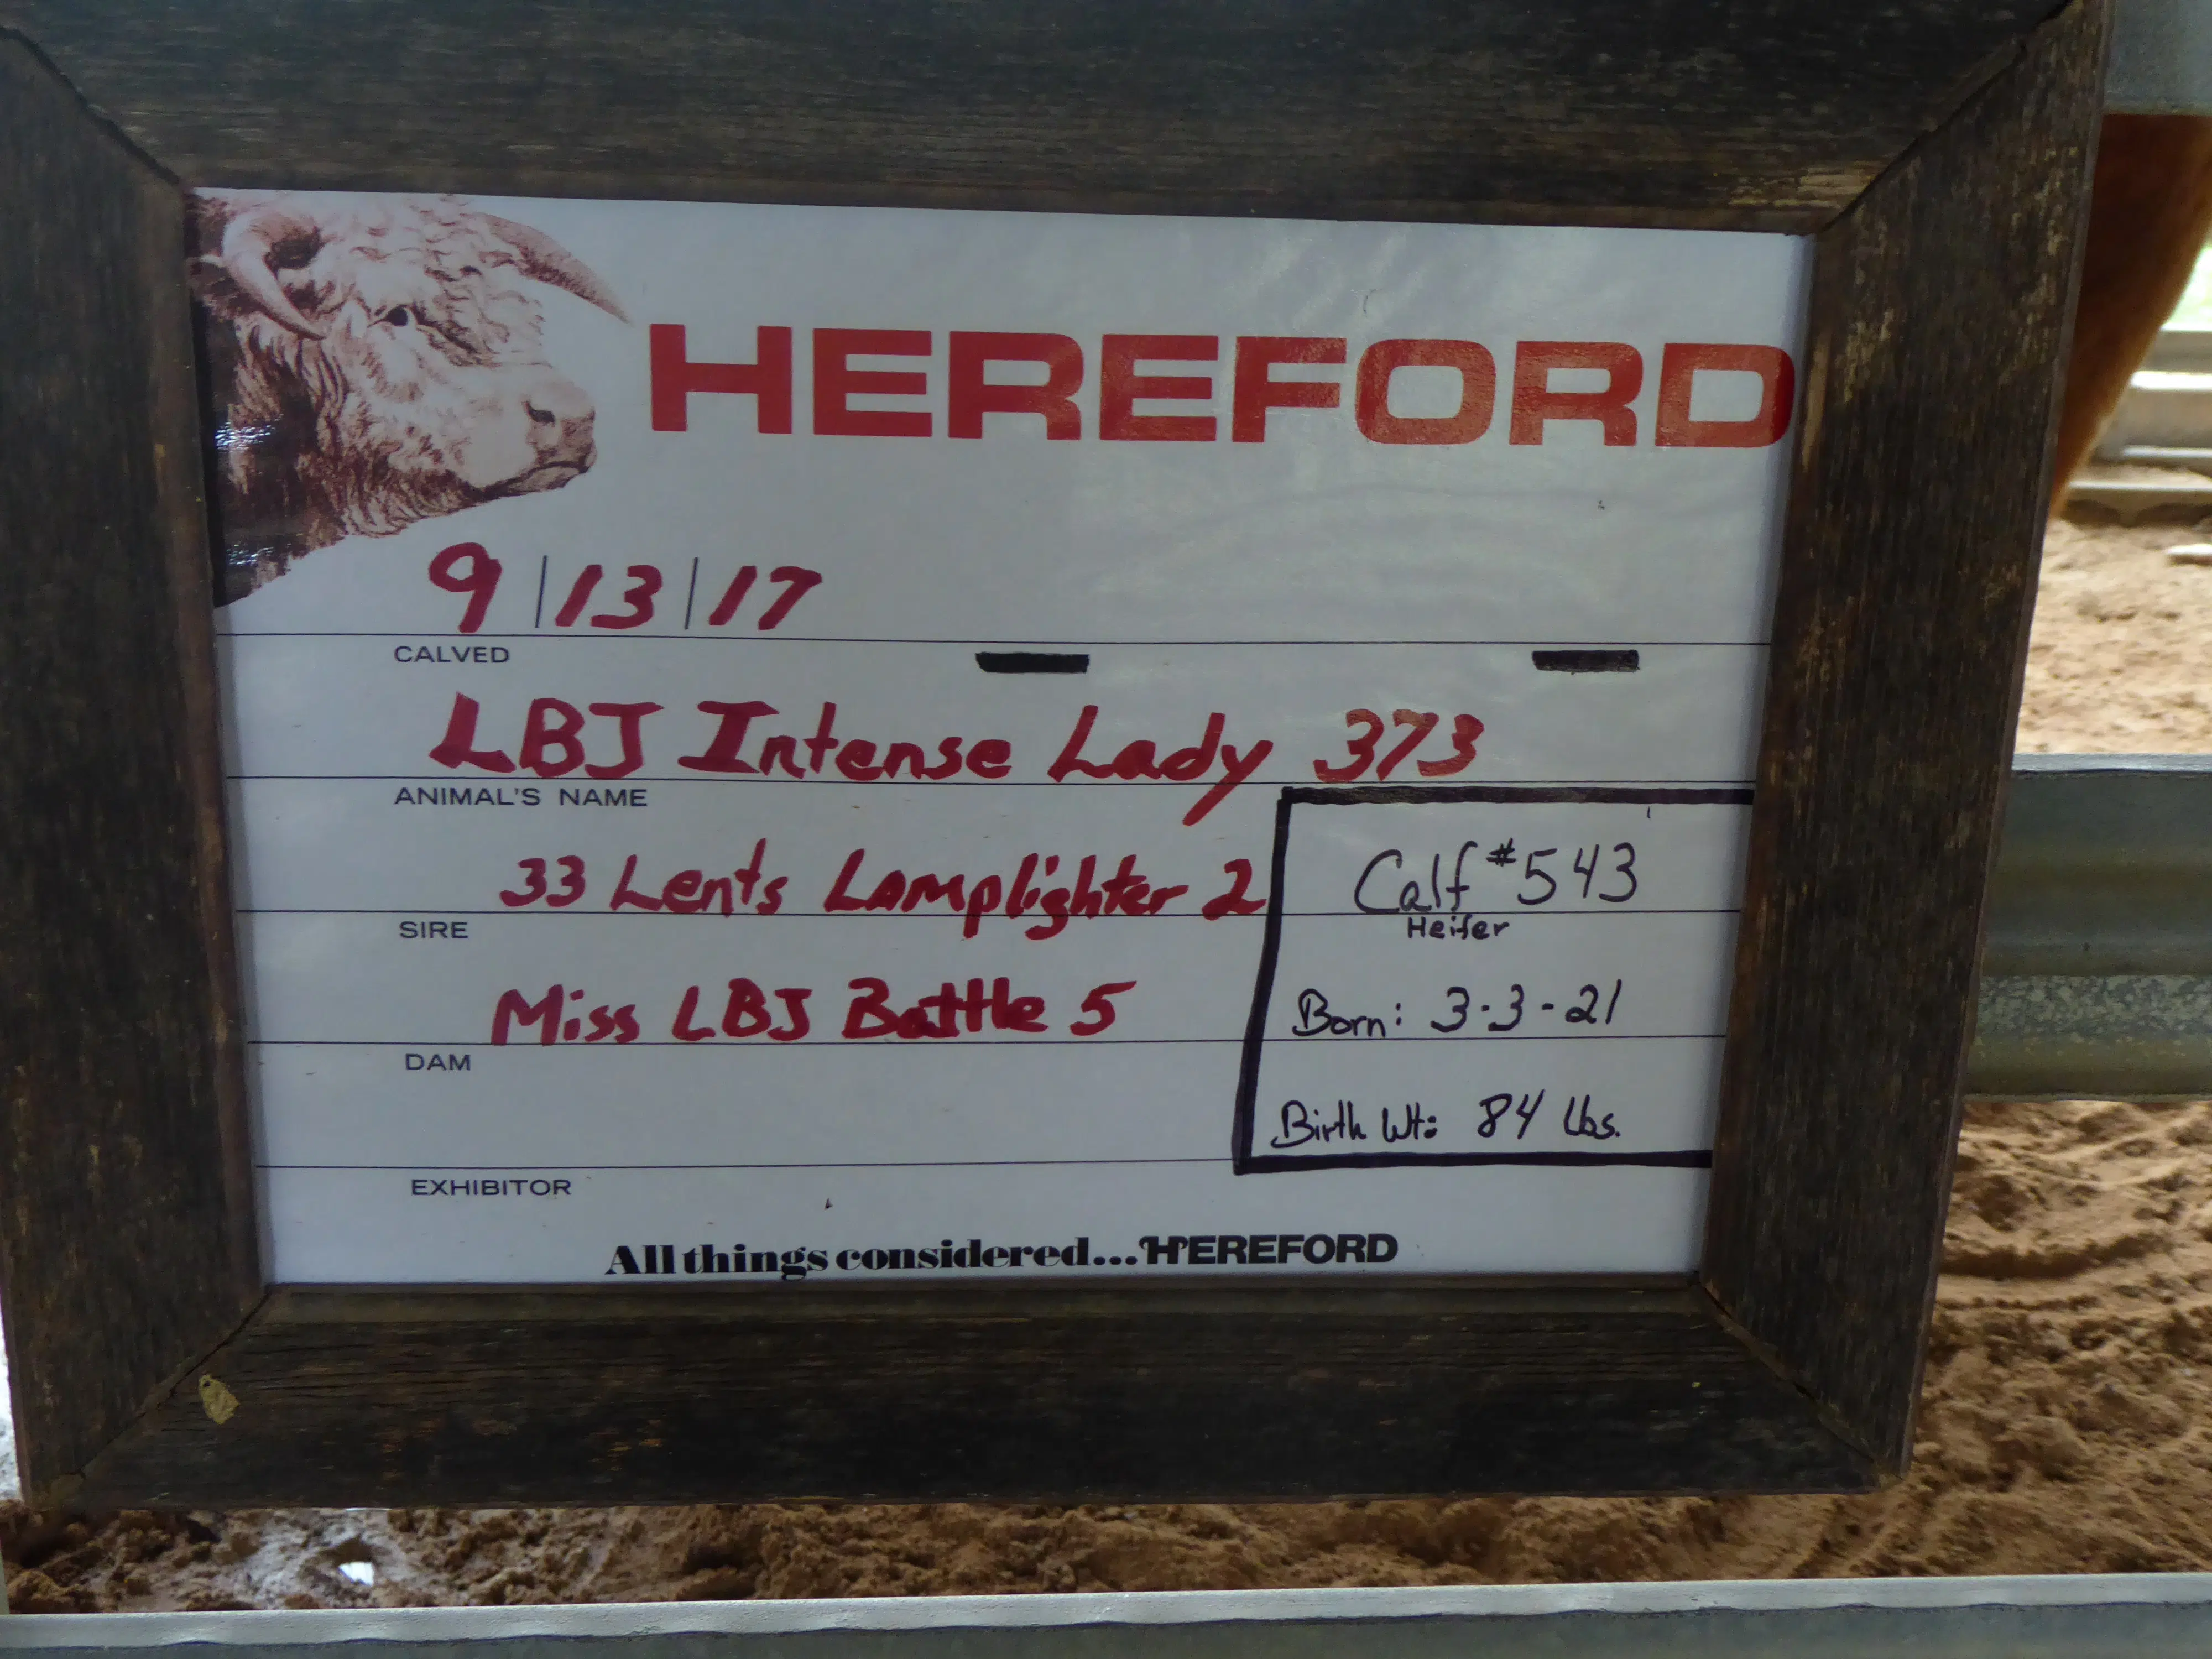 HEREFORD
9/13/17
CALVED
LBJ Intense Lady 373
ANIMAL'S NAME
33 Lents Lamplighter 2
SIRE
Miss LBJ Battle 5
DAM
Calf #543
Heifer
Born: 3-3-21
Birth Wt: 84 lbs.
EXHIBITOR
All things considered...HEREFORD